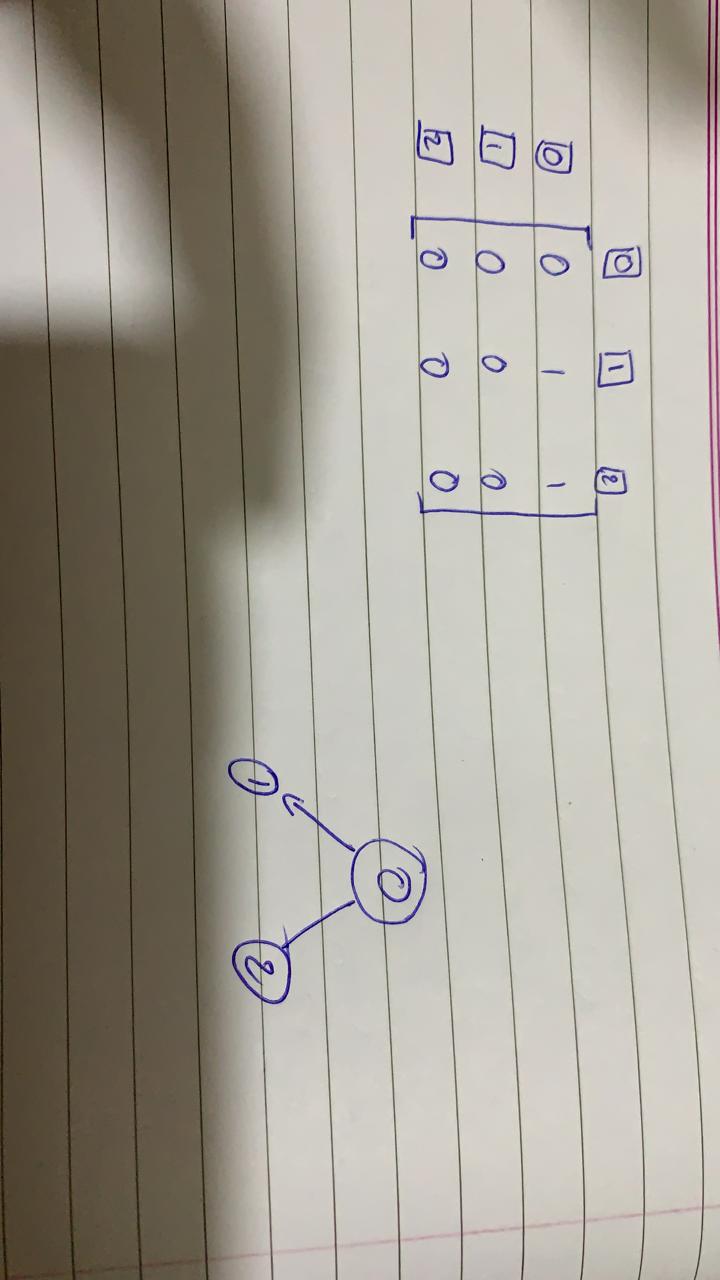 0 1 2
0 0 1 1
1 0 0 0
2 0 0 0
0
1 2